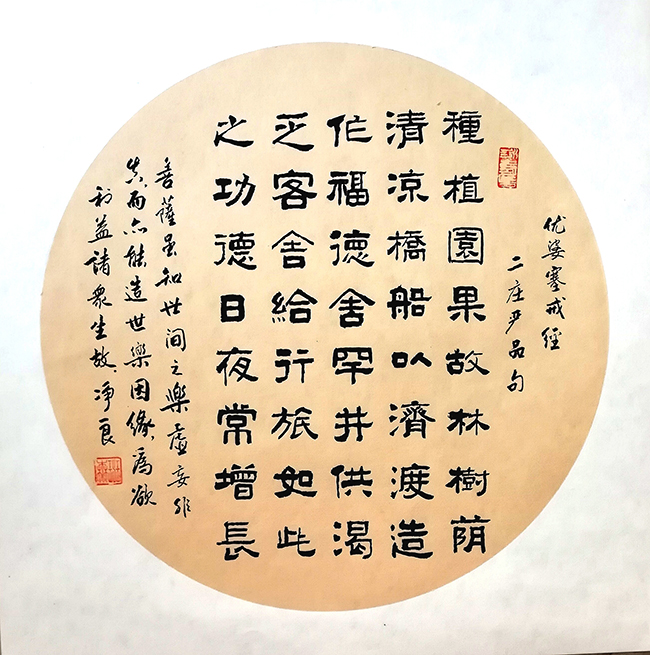 优婆塞戒經
二庄严品句
種植園果故林樹荫
清凉橋船以濟渡造
作福德舍罕井供渴
乏客舍給行旅如此
之功德日夜常增長
菩薩虽知世间之樂虚妄非
真而亦能造世樂因緣為欲
利益諸衆生故净良